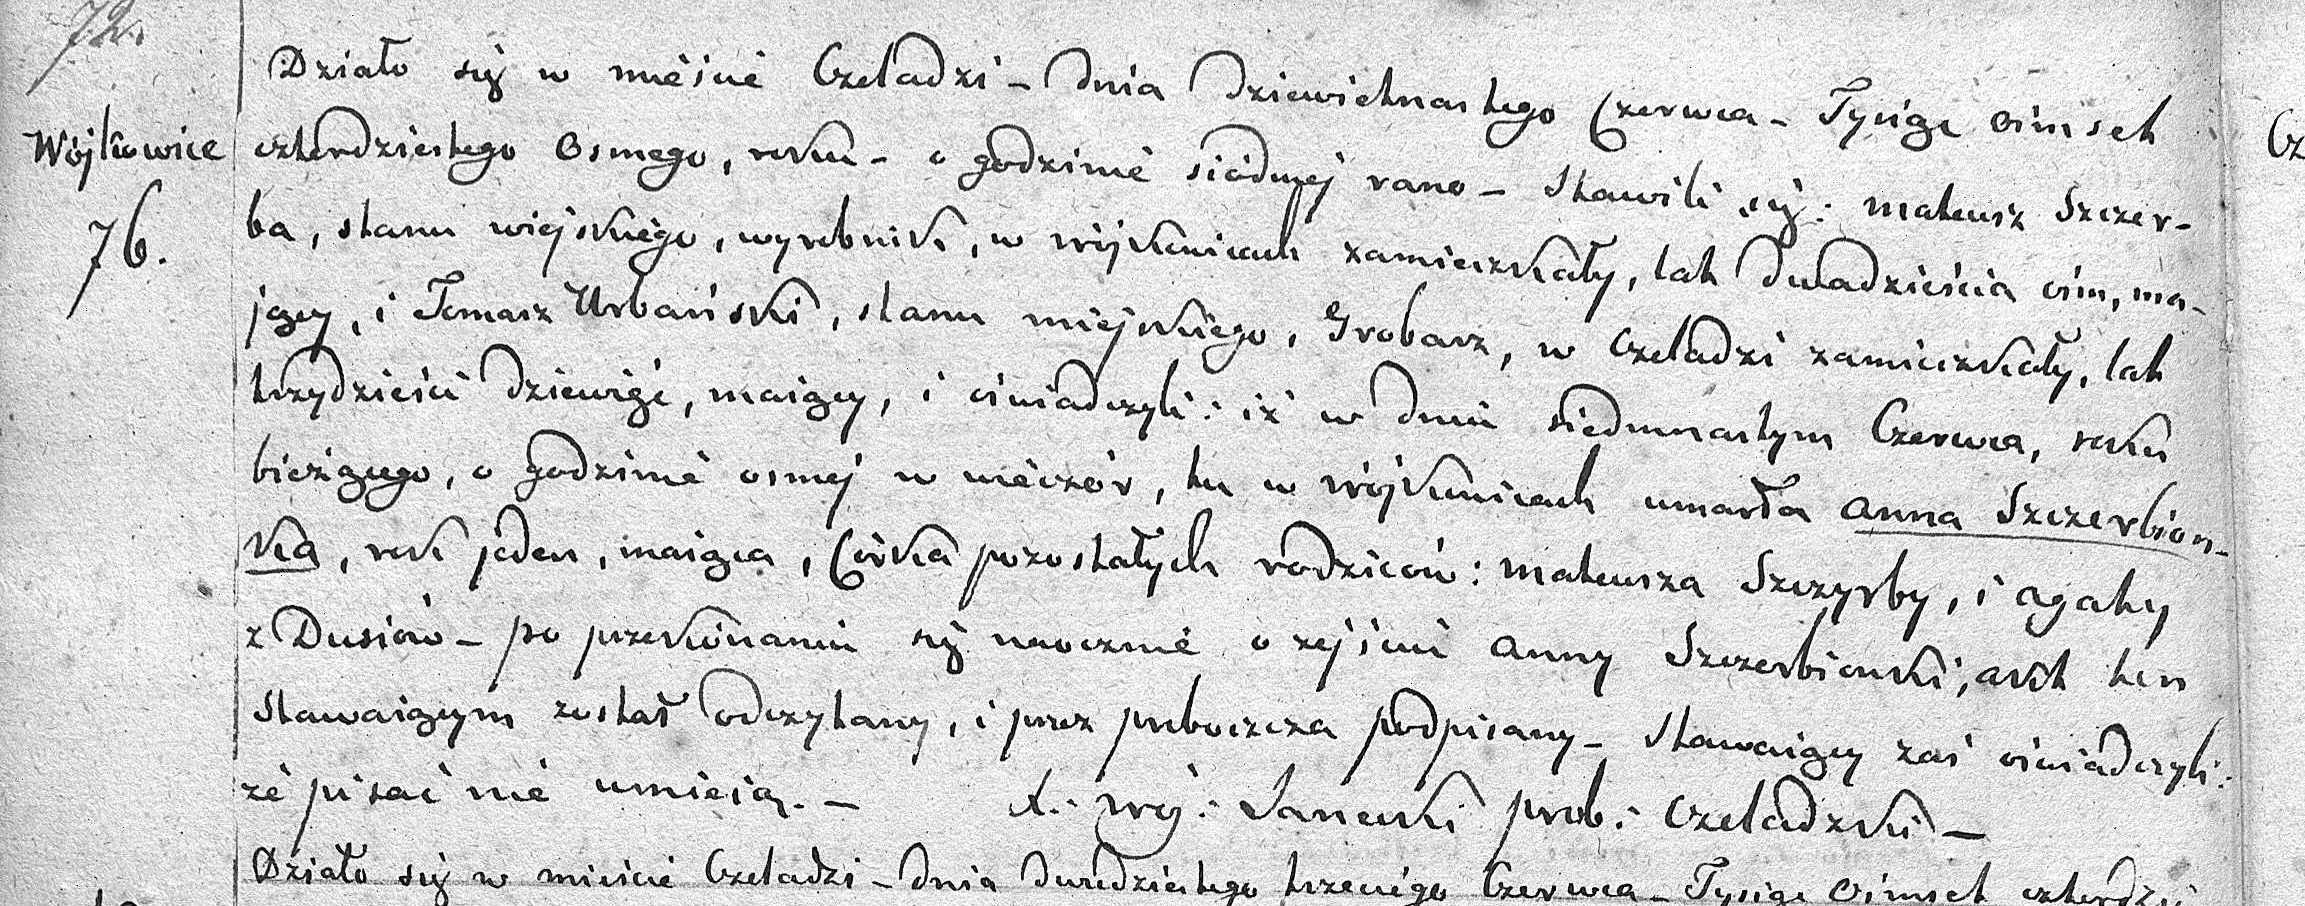 72.
Działo się w mieście Czeladzi – dnia dziewietnastego Czerwca – Tysiąc ośmset
Wójkowice
czterdziestego osmego, roku – o godzinie siódmej rano – Stawili się: Mateusz Szczer-
76.
ba, stanu wiejskiego, wyrobnik, w Wójkowicach zamieszkały, lat dwadzieścia ośm, ma-
jący, i Tomasz Urbański, stanu miejskiego, Grobarz, w Czeladzi zamieszkały, lat
trzydzieści dziewięć, maiący, i oświadczyli: iż w dniu siedmnastym Czerwca, roku
bieżącego, o godzinie osmej w wieczór, tu w Wójkowicach umarła Anna Szczerbion-
ka, rok jeden, maiąca, Córka pozostałych rodziców: Mateusza Szczyrby, i Agaty
z Dusiów – po przekonaniu się naocznie o zejściu Anny Szczerbionki, akt ten
Stawaiącym został odczytany, i przez proboszcza podpisany – Stawaiący zaś oświadczyli:
że pisać nie umieią. – X: Woj: prob: Czeladzki –
Działo się w mieście Czeladzi – dnia dwudziestego trzeciego Czerwca – Tysiąc ośmset
Cz